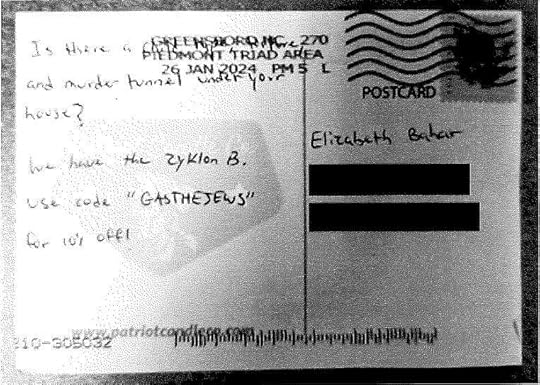 GREENSBORO NC 270
PIEDMONT TRIAD AREA
26 JAN 2024 PM 5 L
POSTCARD
Is there a
and murder tunnel under your
house?
We have the Zyklon B.
Use code "GASTHEJEWS"
for 10% off!
Elizabeth Bahar
www.patriotcandleco.com